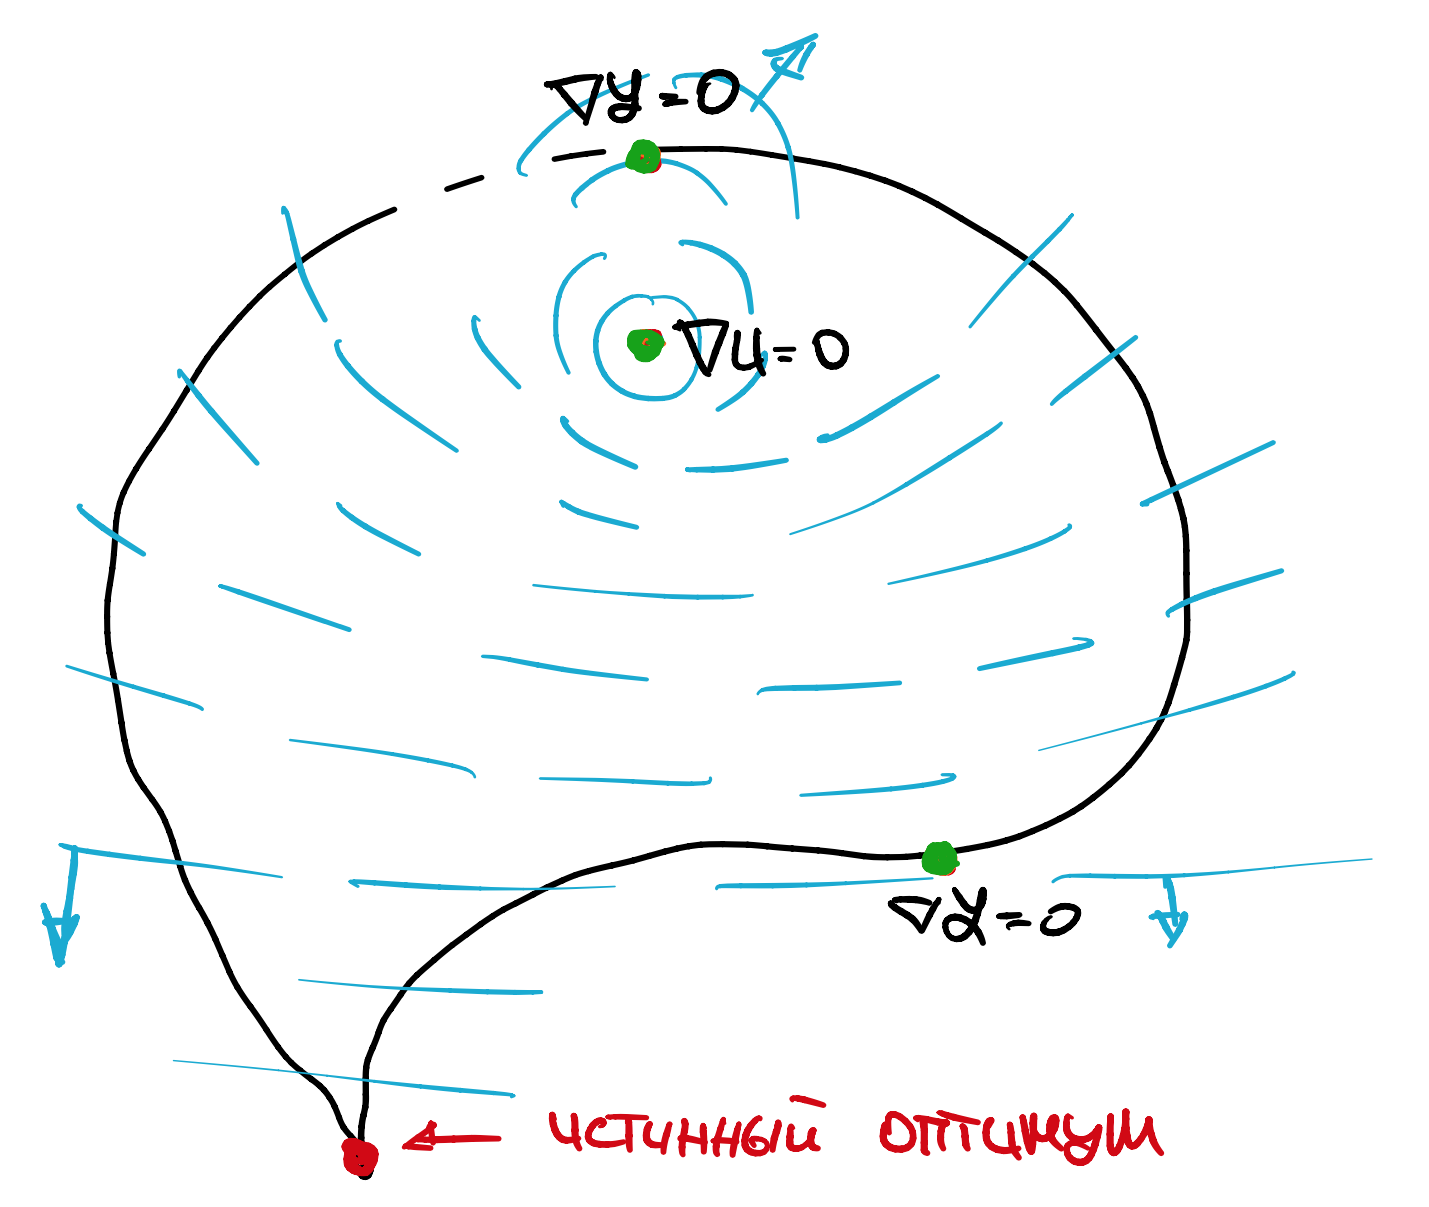 ∇𝓛=0
∇u=0
∇𝓛=0
истинный оптимум